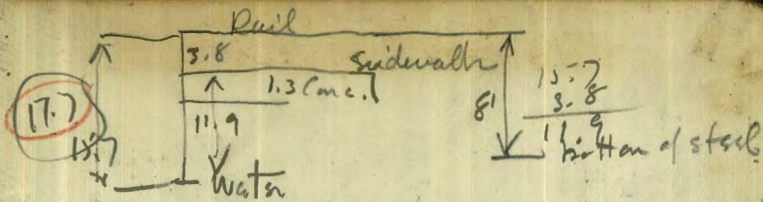 Rail
3.8
Sidewalk
1.3 Conc.
17.7
15.7
11.9
Water
8'
15.7
3.8
11.9
bottom of steel